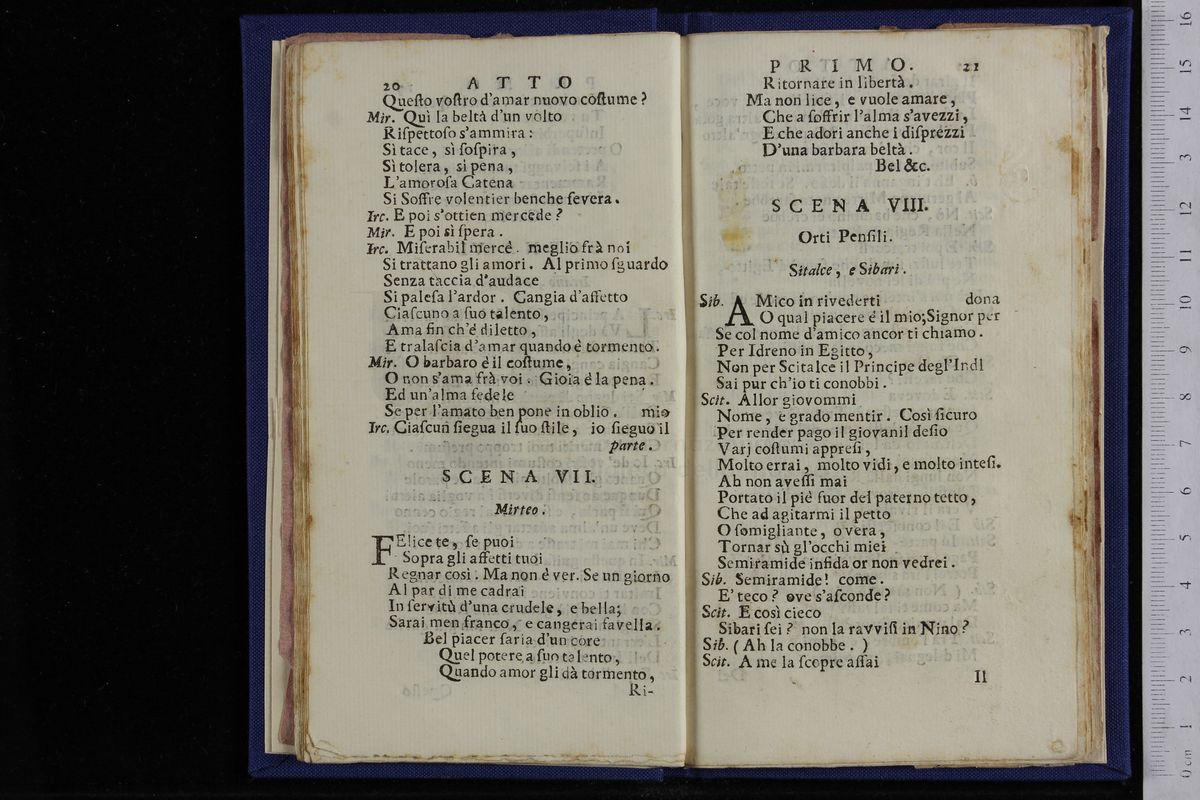 20 ATTO
Queſto voſtro d'amar nuovo coſtume ?
Mir. Quì la beltà d'un volto
Riſpettoſo s'ammira :
Sì tace, sì ſoſpira,
Sì tolera, si pena,
L'amoroſa Catena
Si Soffre volentier benche ſevera.
Irc. E poi s'ottien mercede ?
Mir. E poi sì ſpera.
Irc. Miſerabil mercè. meglio frà noi
Si trattano gli amori. Al primo ſguardo
Senza taccia d'audace
Si paleſa l'ardor. Cangia d'affetto
Ciaſcuno a ſuo talento,
Ama fin ch'é diletto,
E tralaſcia d'amar quando è tormento.
Mir. O barbaro è il coſtume,
O non s'ama frà voi. Gioia è la pena.
Ed un'alma fedele
Se per l'amato ben pone in oblio. mio
Irc. Ciaſcun ſiegua il ſuo ſtile, io ſieguo il
parte.
SCENA VII.
Mirteo.
FElice te, ſe puoi
Sopra gli affetti tuoi
Regnar così. Ma non è ver. Se un giorno
Al par di me cadrai
In ſervitù d'una crudele, e bella;
Sarai men franco, e cangerai favella.
Bel piacer ſaria d'un core
Quel potere a ſuo talento,
Quando amor gli dà tormento,
Ri-
PRIMO. 21
Ritornare in libertà.
Ma non lice, e vuole amare,
Che a ſoffrir l'alma s'avezzi,
E che adori anche i diſprezzi
D'una barbara beltà.
Bel &c.
SCENA VIII.
Orti Penſili.
Sitalce, e Sibari.
Sib. AMico in rivederti dona
O qual piacere é il mio;Signor per
Se col nome d'amico ancor ti chiamo.
Per Idreno in Egitto,
Non per Scitalce il Principe degl'IndI
Sai pur ch'io ti conobbi.
Scit. Allor giovommi
Nome, e grado mentir. Così ſicuro
Per render pago il giovanil deſio
Varj coſtumi appreſi,
Molto errai, molto vidi, e molto inteſi.
Ah non aveſſi mai
Portato il piè fuor del paterno tetto,
Che ad agitarmi il petto
O ſomigliante, o vera,
Tornar sù gl'occhi miei
Semiramide infida or non vedrei.
Sib. Semiramide! come.
E' teco ? ove s'aſconde ?
Scit. E così cieco
Sibari ſei ? non la ravviſi in Nino ?
Sib. ( Ah la conobbe. )
Scit. A me la ſcopre aſſai
Il